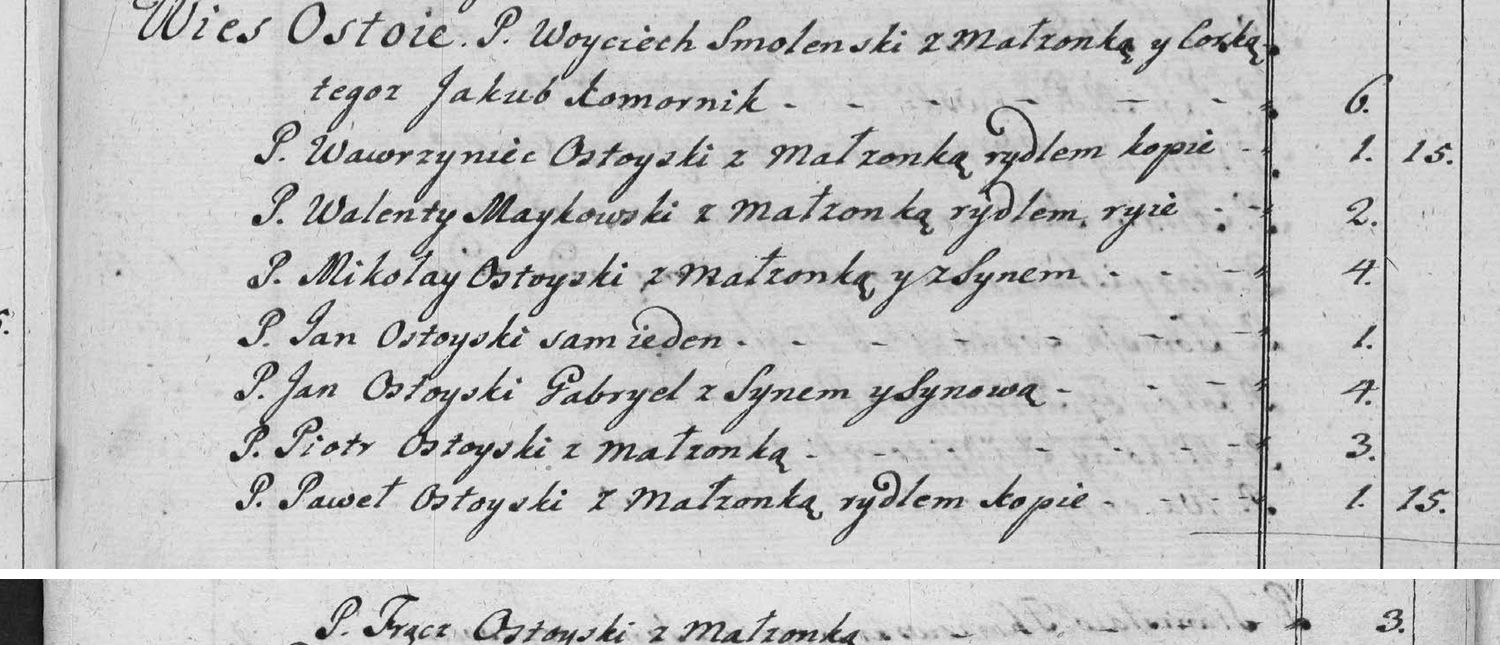 Wies Ostoie. P. Woyciech Smolenski z Małzonką y Corką
tegoz Jakub Komornik - - - - - - 6.
P. Wawrzyniec Ostoyski z Małzonką rydlem kopie - 1. 15.
P. Walenty Maykowski z Małzonką rydlem ryie - - 2.
P. Mikołay Ostoyski z Małzonką y z Synem - - - 4.
P. Jan Ostoyski sam ieden - - - - - 1.
P. Jan Ostoyski Gabryel z Synem y Synową - - - 4.
P. Piotr Ostoyski z Małzonką - - - - - - 3.
P. Paweł Ostoyski z Małzonką rydlem kopie - - - 1. 15.
P. Frącz Ostoyski z Małzonką 3.